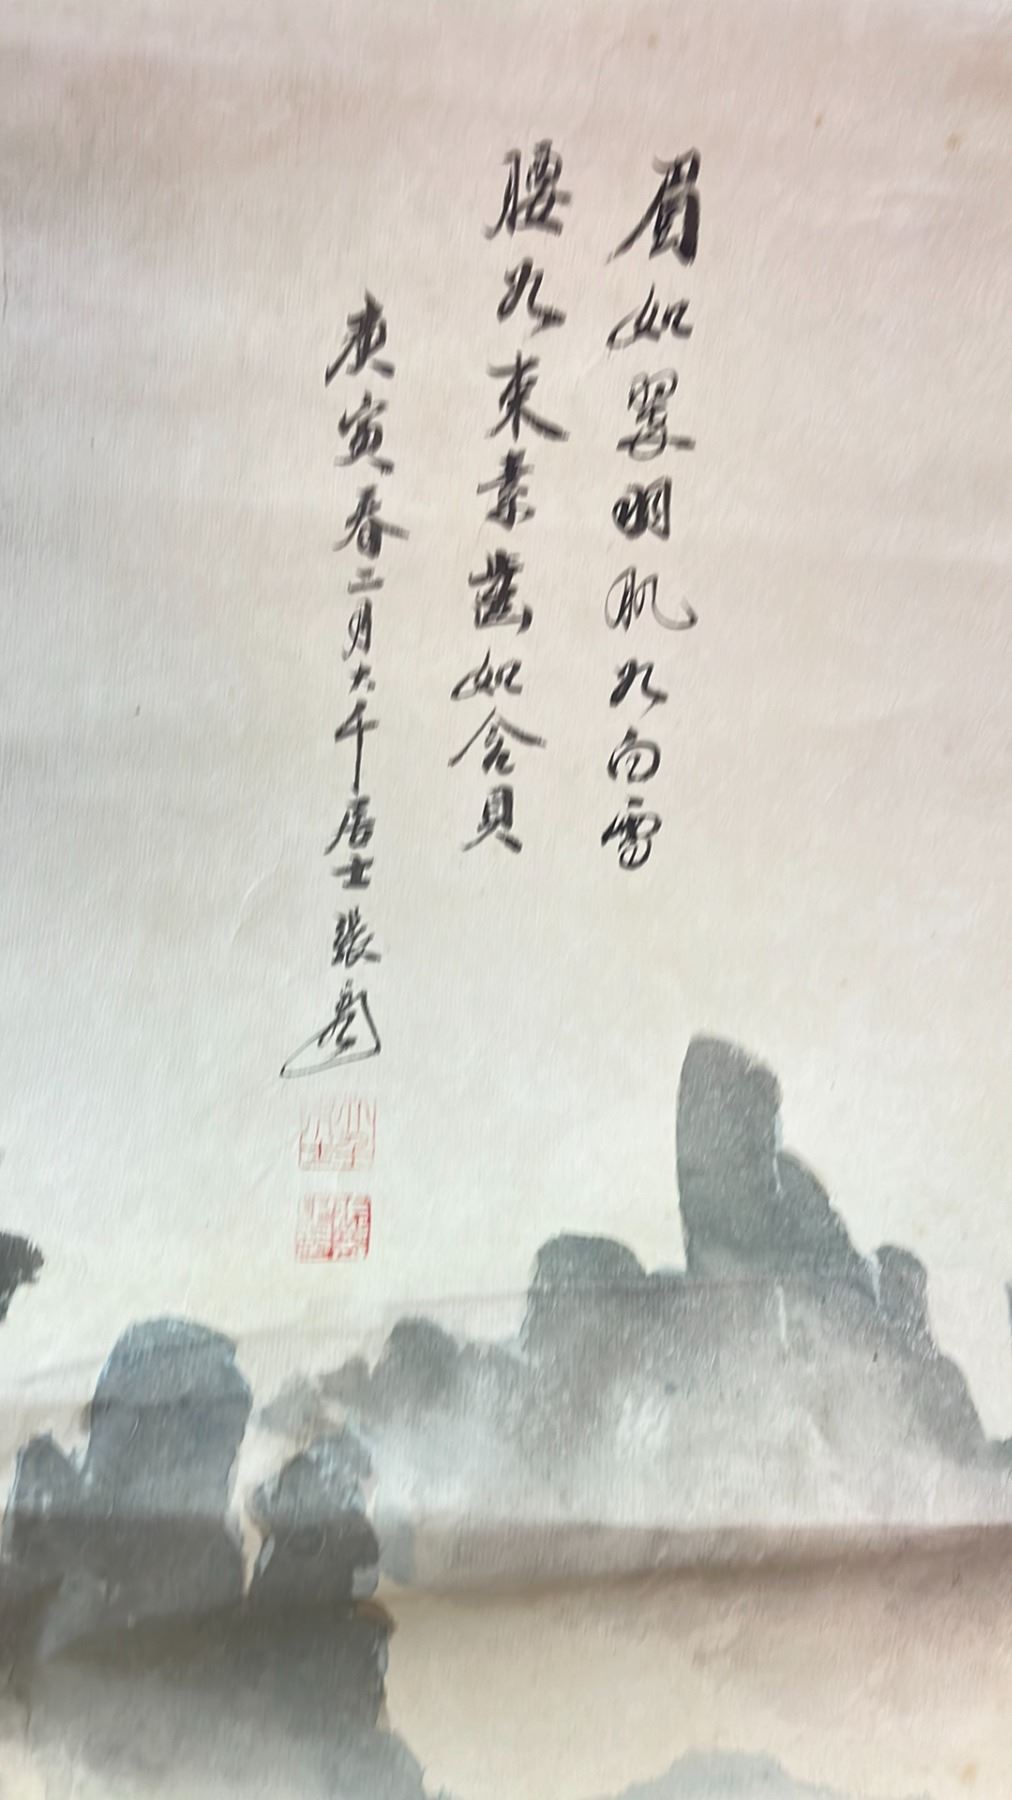 眉如翠羽肌如白雪
腰如束素齒如含貝
庚寅春二月大千居士張爰